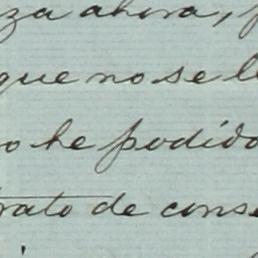 za ahora,
que no se le
o he podido
trato de conse